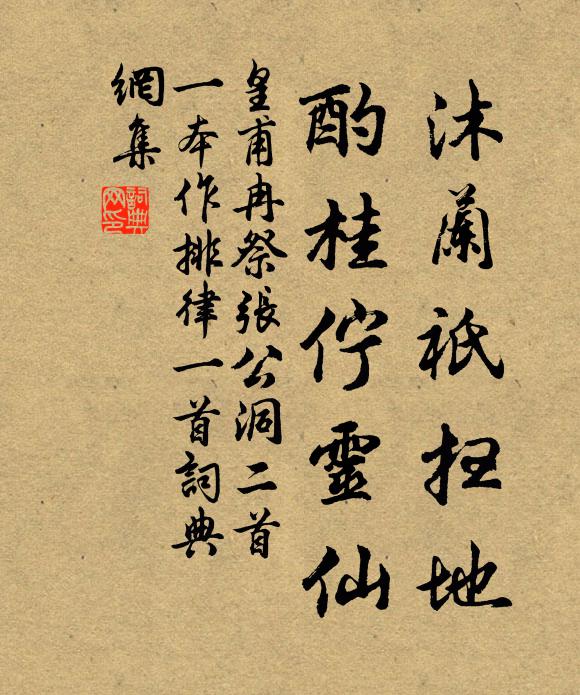 沐蘭祇扫地
酌桂佇靈仙
皇甫冉祭張公洞二首
一本作排律一首詞典
網集
詞典网印